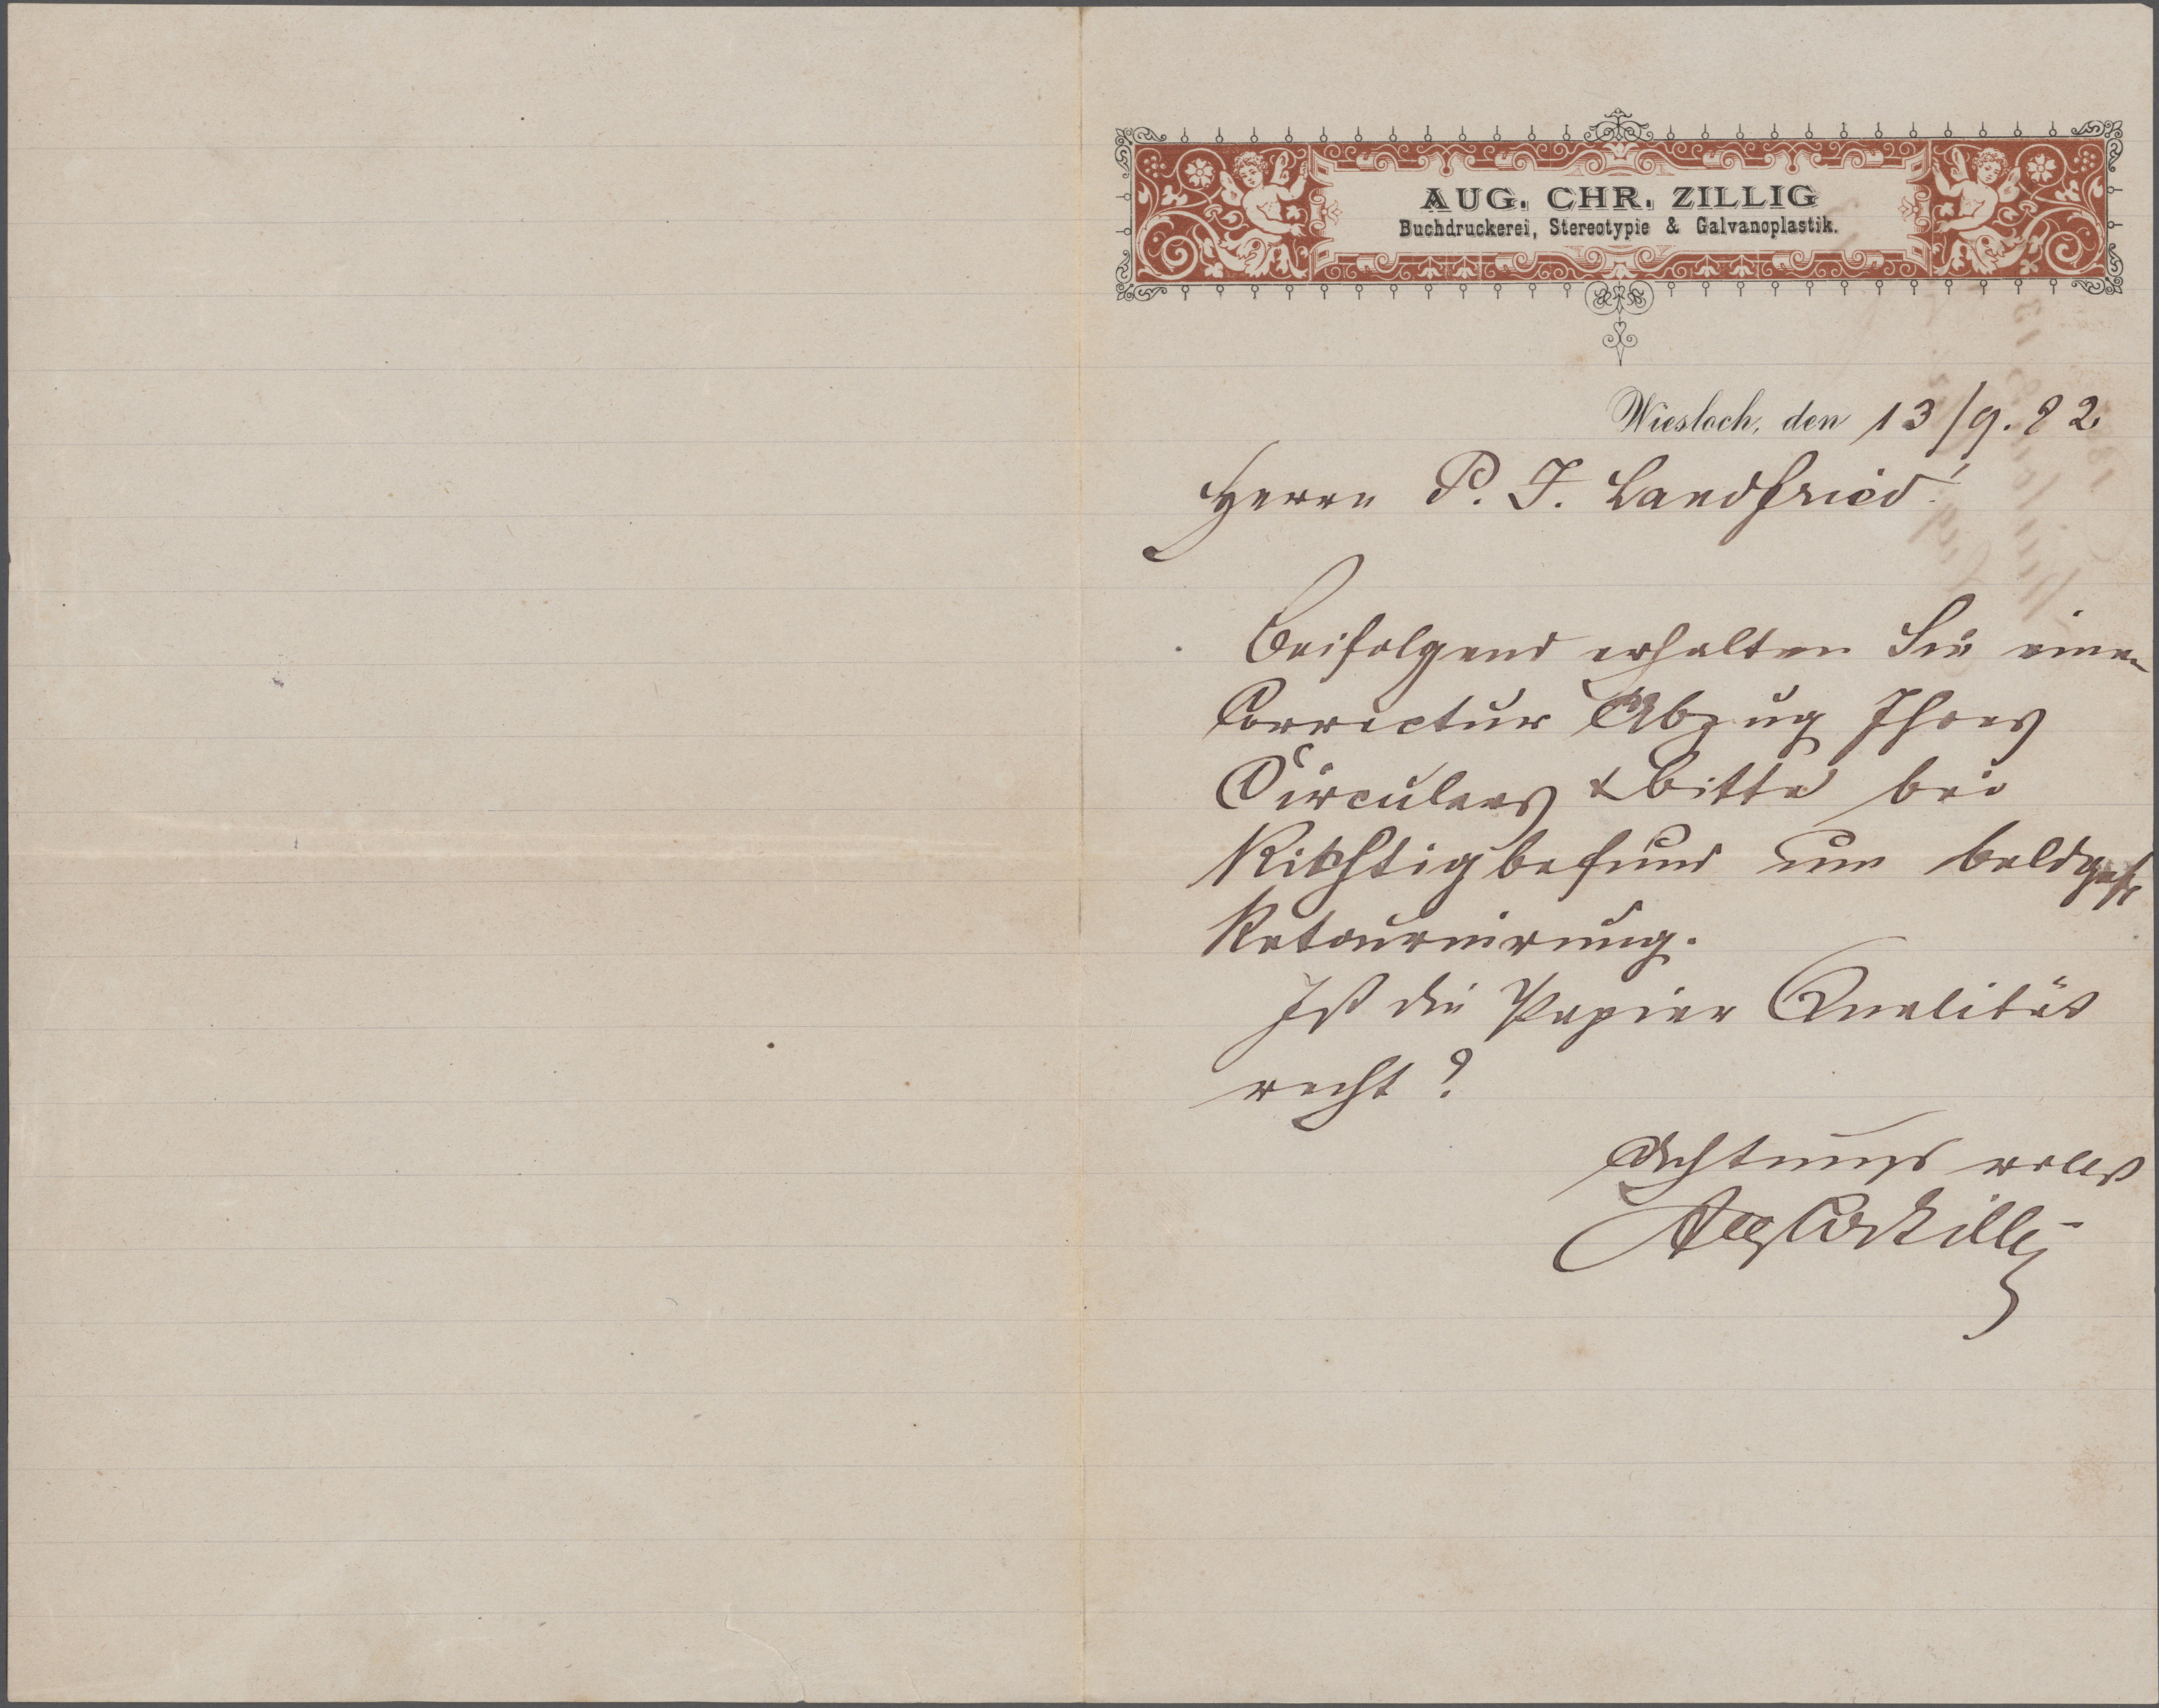 AUG. CHR. ZILLIG
Buchdruckerei, Stereotypie & Galvanoplastik.
Wiesloch, den 13/9. 82.
Herrn P. J. Landfried!
Beifolgend erhalten Sie einen
Correctur Abzug Ihres
Circulars & bitte bei
Richtigbefund um baldgefl
Retournirung.
Ist die Papier Qualität
recht?
Achtungsvollst
Aug Chr Zillig